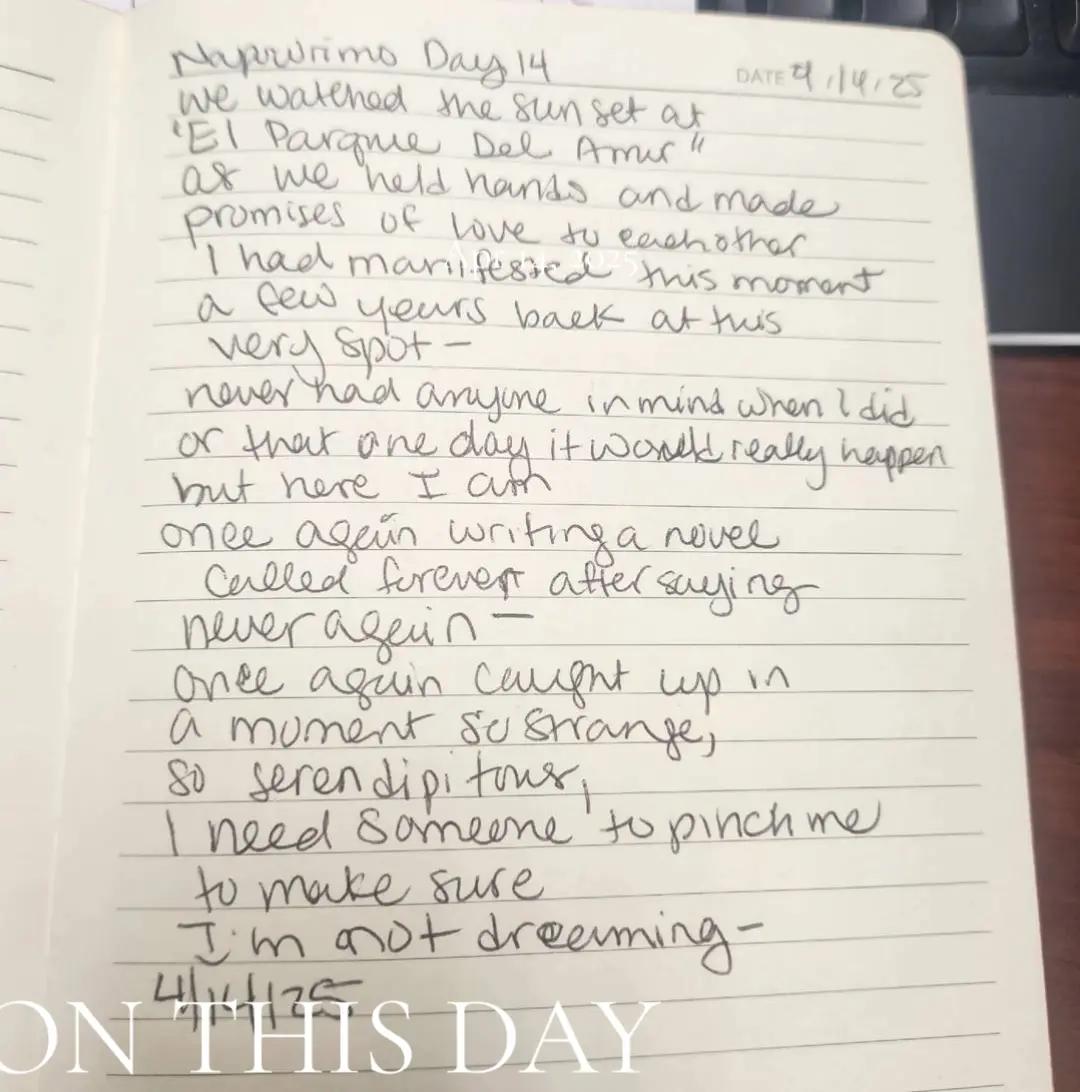 Napowrimo Day 14
DATE 4/14/25
we watched the sunset at
"El Parque Del Amor"
as we held hands and made
promises of love to eachother
I had manifested this moment
a few years back at this
very spot -
never had anyone in mind when I did
or that one day it would really happen
but here I am
once again writing a novel
called forever after saying
never again -
once again caught up in
a moment so strange,
so serendipitous,
I need someone to pinch me
to make sure
I'm not dreaming -
4/14/25
ON THIS DAY